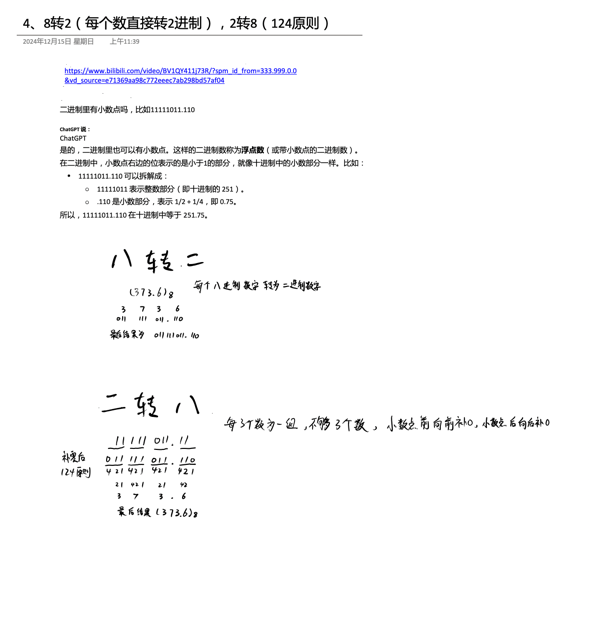 4、8转2（每个数直接转2进制），2转8（124原则）
2024年12月15日 星期日 上午11:39
https://www.bilibili.com/video/BV1QY411j73R/?spm_id_from=333.999.0.0
&vd_source=e71369aa98c772eeec7ab298bd57af04
二进制里有小数点吗，比如11111011.110
ChatGPT 说：
ChatGPT
是的，二进制里也可以有小数点。这样的二进制数称为浮点数（或带小数点的二进制数）。
在二进制中，小数点右边的位表示的是小于1的部分，就像十进制中的小数部分一样。比如：
• 11111011.110 可以拆解成：
○ 11111011 表示整数部分（即十进制的 251）。
○ .110 是小数部分，表示 1/2 + 1/4，即 0.75。
所以，11111011.110 在十进制中等于 251.75。
八 转 二
(373.6)8 每个八进制数字 转为 二进制数字
3 7 3 6
011 111 011 . 110
最后结果为 011111011.110
二 转 八
每3个数为一组，不够3个数，小数点前向前补0，小数点后向后补0
11 111 011 . 11
补零后 011 111 011 . 110
124原则 421 421 421 421
21 421 21 42
3 7 3 . 6
最后结果 (373.6)8